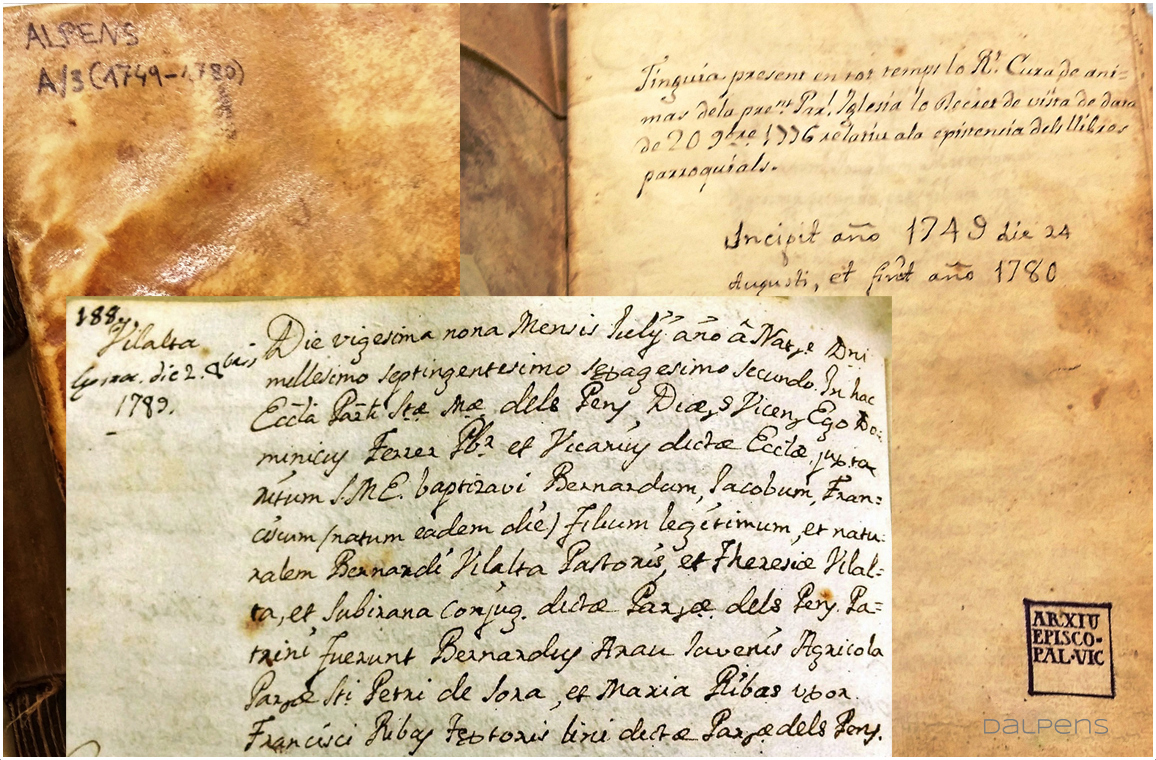 ALPENS
A/3 (1749-1780)
Tinguia present en tot temps lo Rt. Cura de ani=
mas dela prent. Parl. Iglesia lo Decret de visita de data
de 20 9bre 1776 relatiu ala existencia dels llibres
parroquials.
Incipit año 1749 die 24
Augusti, et finit año 1780
188.
Vilalta
die 2.
1789.
Die vigesima nona Mensis Julÿ año â Nat.e Dni
millesimo septingentesimo septuagesimo secundo. In hac
Eccla Parli Stæ Mæ dels Pens Diæcs Vicens Ego Do=
minicus Ferrer Pbr et Vicarius dictæ Ecclæ, juxta
ritum S.M.E. baptizavi Bernardum, Jacobum, Fran=
ciscum (natum eadem die) filium legitimum, et natu=
ralem Bernardi Vilalta Pastoris, et Theresiæ Vilal=
ta, et Subirana conjug. dictæ Paræ dels Pens. Pa=
trini fuerunt Bernardus Arau Juvenis Agricola
Paræ Sti Petri de Sora, et Maria Ribas uxor
Francisci Ribas textoris lini dictæ Paræ dels Pens.
ARXIU
EPISCO-
PAL·VIC
DALPENS